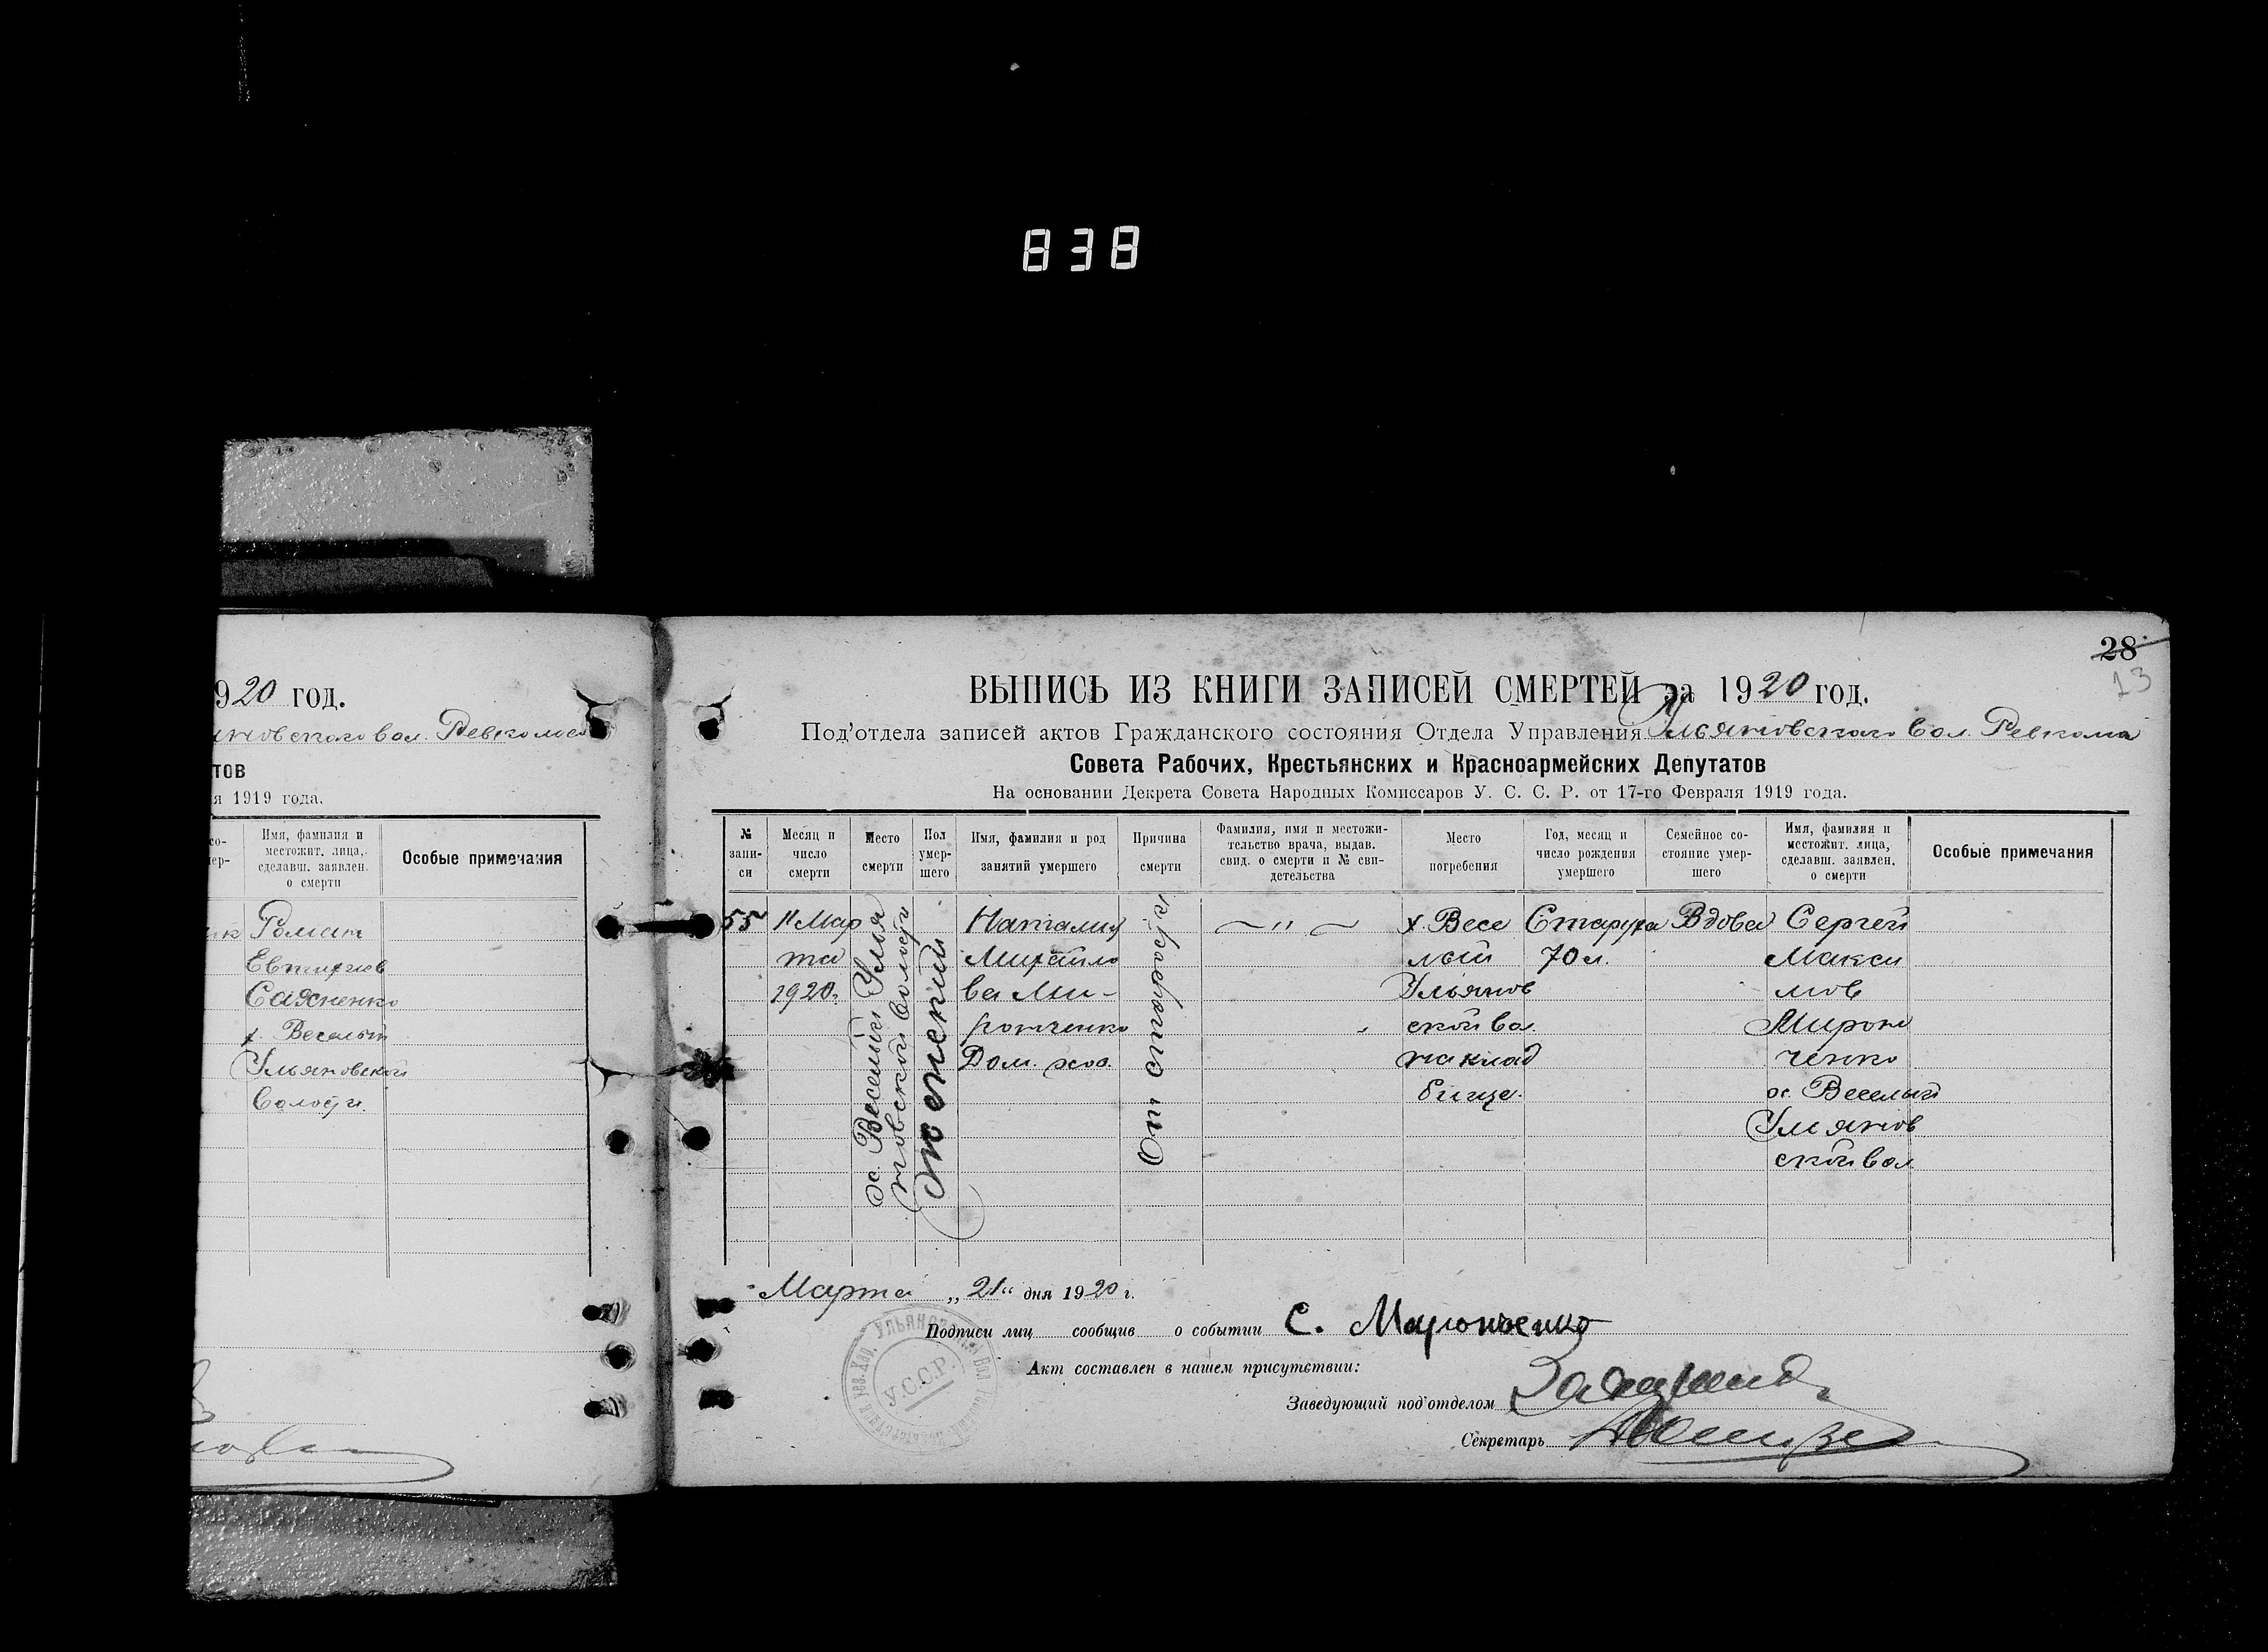 838
920 год.
яновского вол. Ревкома
тов
я 1919 года.
Имя, фамилия и
местожит. лица,
сделавш. заявлен.
о смерти
Особые примечания
Роман
Евтихиев
х. Веселый
Ульяновской
Волости.
28
13
ВЫПИСЬ ИЗ КНИГИ ЗАПИСЕЙ СМЕРТЕЙ за 1920 год.
Под'отдела записей актов Гражданского состояния Отдела Управления Ульяновского Вол. Ревкома
Совета Рабочих, Крестьянских и Красноармейских Депутатов
На основании Декрета Совета Народных Комиссаров У. С. С. Р. от 17-го Февраля 1919 года.
№
запи-
си
Месяц и
число
смерти
Место
смерти
Пол
умер-
шего
Имя, фамилия и род
занятий умершего
Причина
смерти
Фамилия, имя и местожи-
тельство врача, выдав.
свид. о смерти и № сви-
детельства
Место
погребения
Год, месяц и
число рождения
умершего
Семейное со-
стояние умер-
шего
Имя, фамилия и
местожит. лица,
сделавш. заявлен.
о смерти
Особые примечания
55
11 Мар
та
1920 г.
х. Веселый Улья
новской волости
Женский
Наталия
Михайло
ва Ми-
ронченко
Дом. хоз.
От старости
— " —
х. Весе
лый
Ульянов
ской вол.
на клад
бище.
Старуха
70 л.
Вдова
Сергей
Макси
мов
Мирон
ченко
х. Веселый
Ульянов
ской вол.
Марта „21“ дня 1920 г.
Подписи лиц сообщив о событии С. Миронченко
Акт составлен в нашем присутствии:
Заведующий под'отделом
Секретарь
У.С.С.Р.